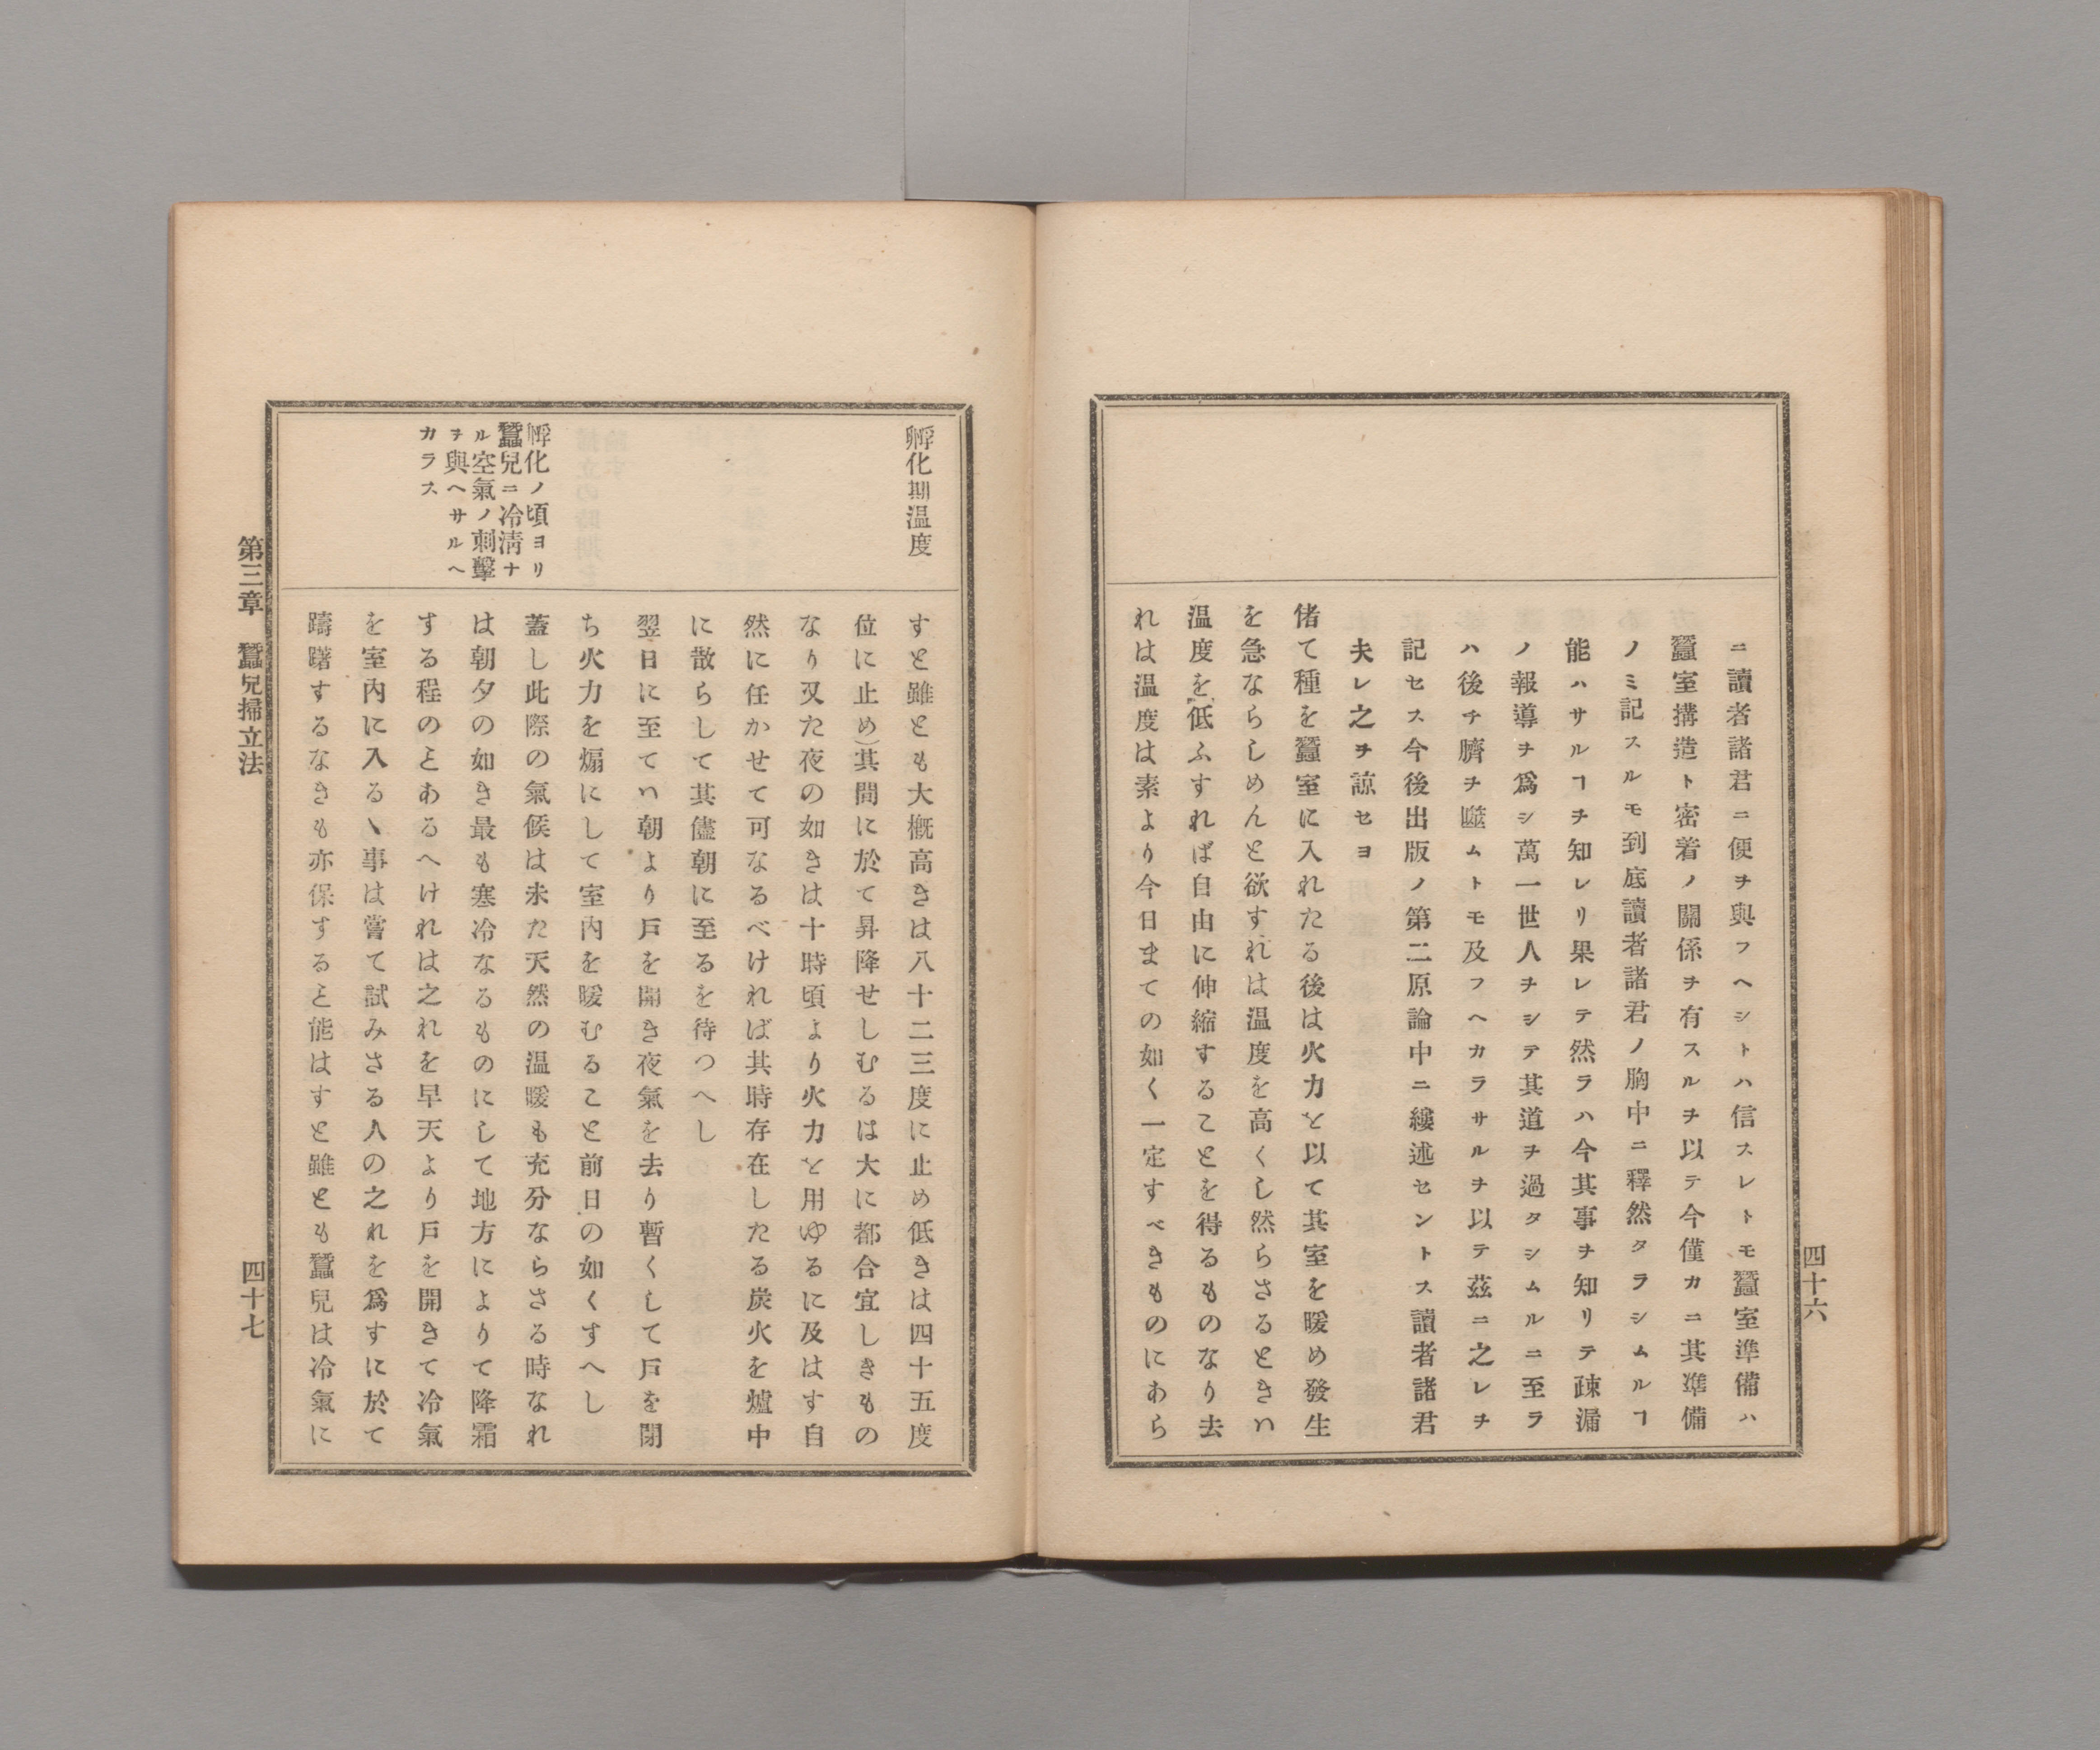 四十六
ニ讀者諸君ニ便ヲ與フヘシトハ信スレトモ蠶室準備ハ
蠶室搆造ト密着ノ關係ヲ有スルヲ以テ今僅カニ其準備
ノミ記スルモ到底讀者諸君ノ胸中ニ釋然タラシムルヿ
能ハサルヿヲ知レリ果レテ然ラハ今其事ヲ知リテ疎漏
ノ報導ヲ爲シ萬一世人ヲシテ其道ヲ過タシムルニ至ラ
ハ後チ臍ヲ噬ムトモ及フヘカラサルヲ以テ茲ニ之レヲ
記セス今後出版ノ第二原論中ニ縷述セントス讀者諸君
夫レ之ヲ諒セヨ
偖て種を蠶室に入れたる後は火力を以て其室を暖め發生
を急ならしめんと欲すれは温度を高くし然らさるときハ
温度を低ふすれば自由に伸縮することを得るものなり去
れは温度は素より今日までの如く一定すべきものにあら
孵化期温度
すと雖とも大概高きは八十二三度に止め低きは四十五度
位に止め)其間に於て昇降せしむるは大に都合宜しきもの
なり又た夜の如きは十時頃より火力を用ゆるに及はす自
然に任かせて可なるべければ其時存在したる炭火を爐中
に散らして其儘朝に至るを待つへし
翌日に至てハ朝より戸を開き夜氣を去り暫くして戸を閉
ち火力を煽にして室内を暖むること前日の如くすへし
孵化ノ頃ヨリ
蠶兒ニ冷淸ナ
ル空氣ノ刺擊
ヲ與ヘサルヘ
カラス
蓋し此際の氣候は未た天然の温暖も充分ならさる時なれ
は朝夕の如き最も寒冷なるものにして地方によりて降霜
する程のとあるへけれは之れを早天より戸を開きて冷氣
を室内に入るヽ事は嘗て試みさる人の之れを爲すに於て
躊躇するなきも亦保すると能はすと雖とも蠶兒は冷氣に
第三章 蠶兒掃立法
四十七